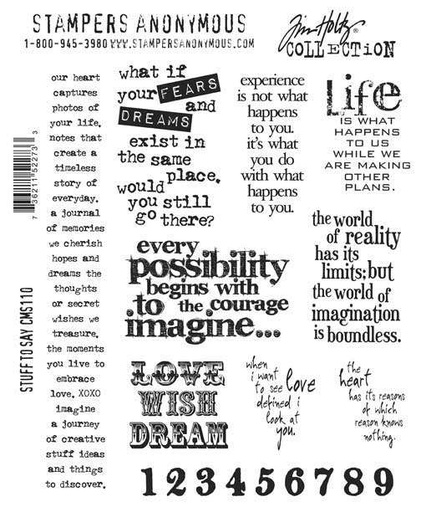 STAMPERS ANONYMOUS
1-800-945-3980 WWW.STAMPERSANONYMOUS.COM
Tim Holtz
COLLECTiON
our heart
captures
photos of
your life.
notes that
create a
timeless
story of
everyday.
a journal
of memories
we cherish
hopes and
dreams the
thoughts
or secret
wishes we
treasure.
the moments
you live to
embrace
love. XOXO
imagine
a journey
of creative
stuff ideas
and things
to discover.
7 36211 52273 3
STUFF TO SAY CMS110
what if
your FEARS
and
DREAMS
exist in
the same
place.
would
you still
go there?
experience
is not what
happens
to you.
it's what
you do
with what
happens
to you.
Life
IS WHAT
HAPPENS
TO US
WHILE WE
ARE MAKING
OTHER
PLANS.
every
possibility
begins with
to the courage
imagine...
the world
of reality
has its
limits; but
the world of
imagination
is boundless.
LOVE
WISH
DREAM
when
i want
to see love
defined i
look at
you.
the
heart
has its reasons
of which
reason knows
nothing.
1 2 3 4 5 6 7 8 9